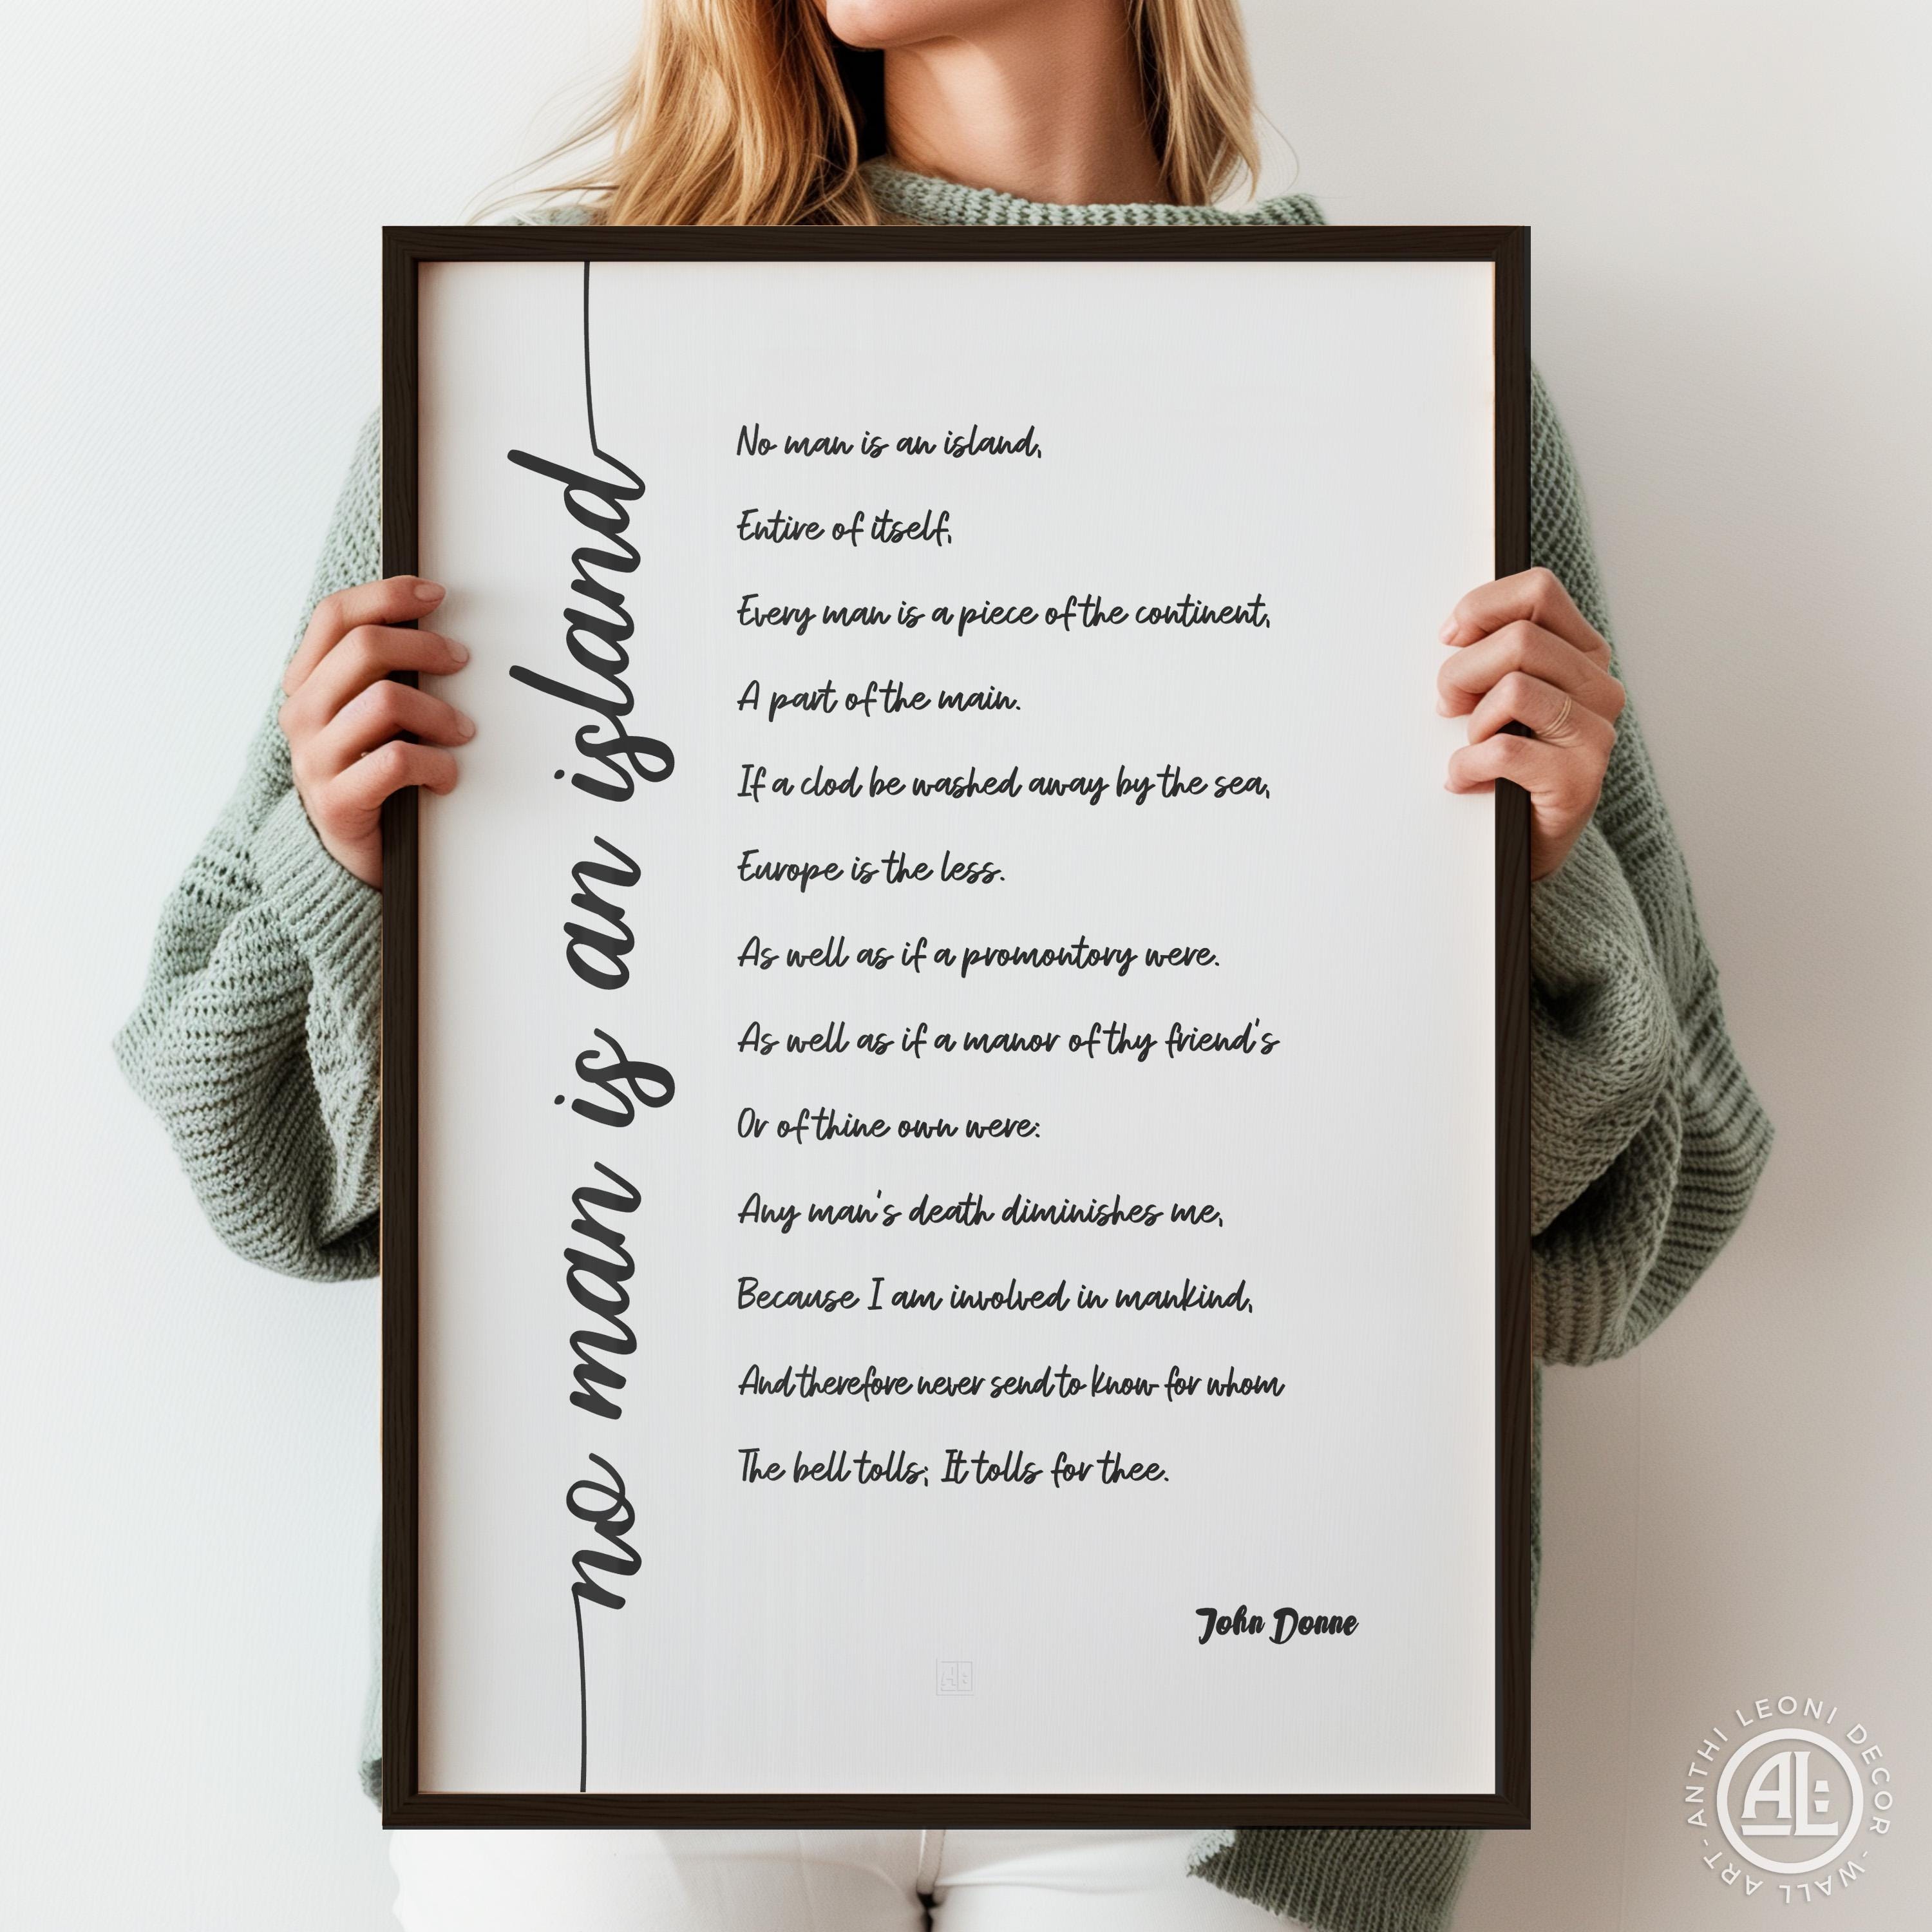 no man is an island
No man is an island,
Entire of itself,
Every man is a piece of the continent,
A part of the main.
If a clod be washed away by the sea,
Europe is the less.
As well as if a promontory were.
As well as if a manor of thy friend's
Or of thine own were:
Any man's death diminishes me,
Because I am involved in mankind,
And therefore never send to know for whom
The bell tolls; It tolls for thee.
John Donne
AL:
ANTHI LEONI DECOR - WALL ART -
AL: